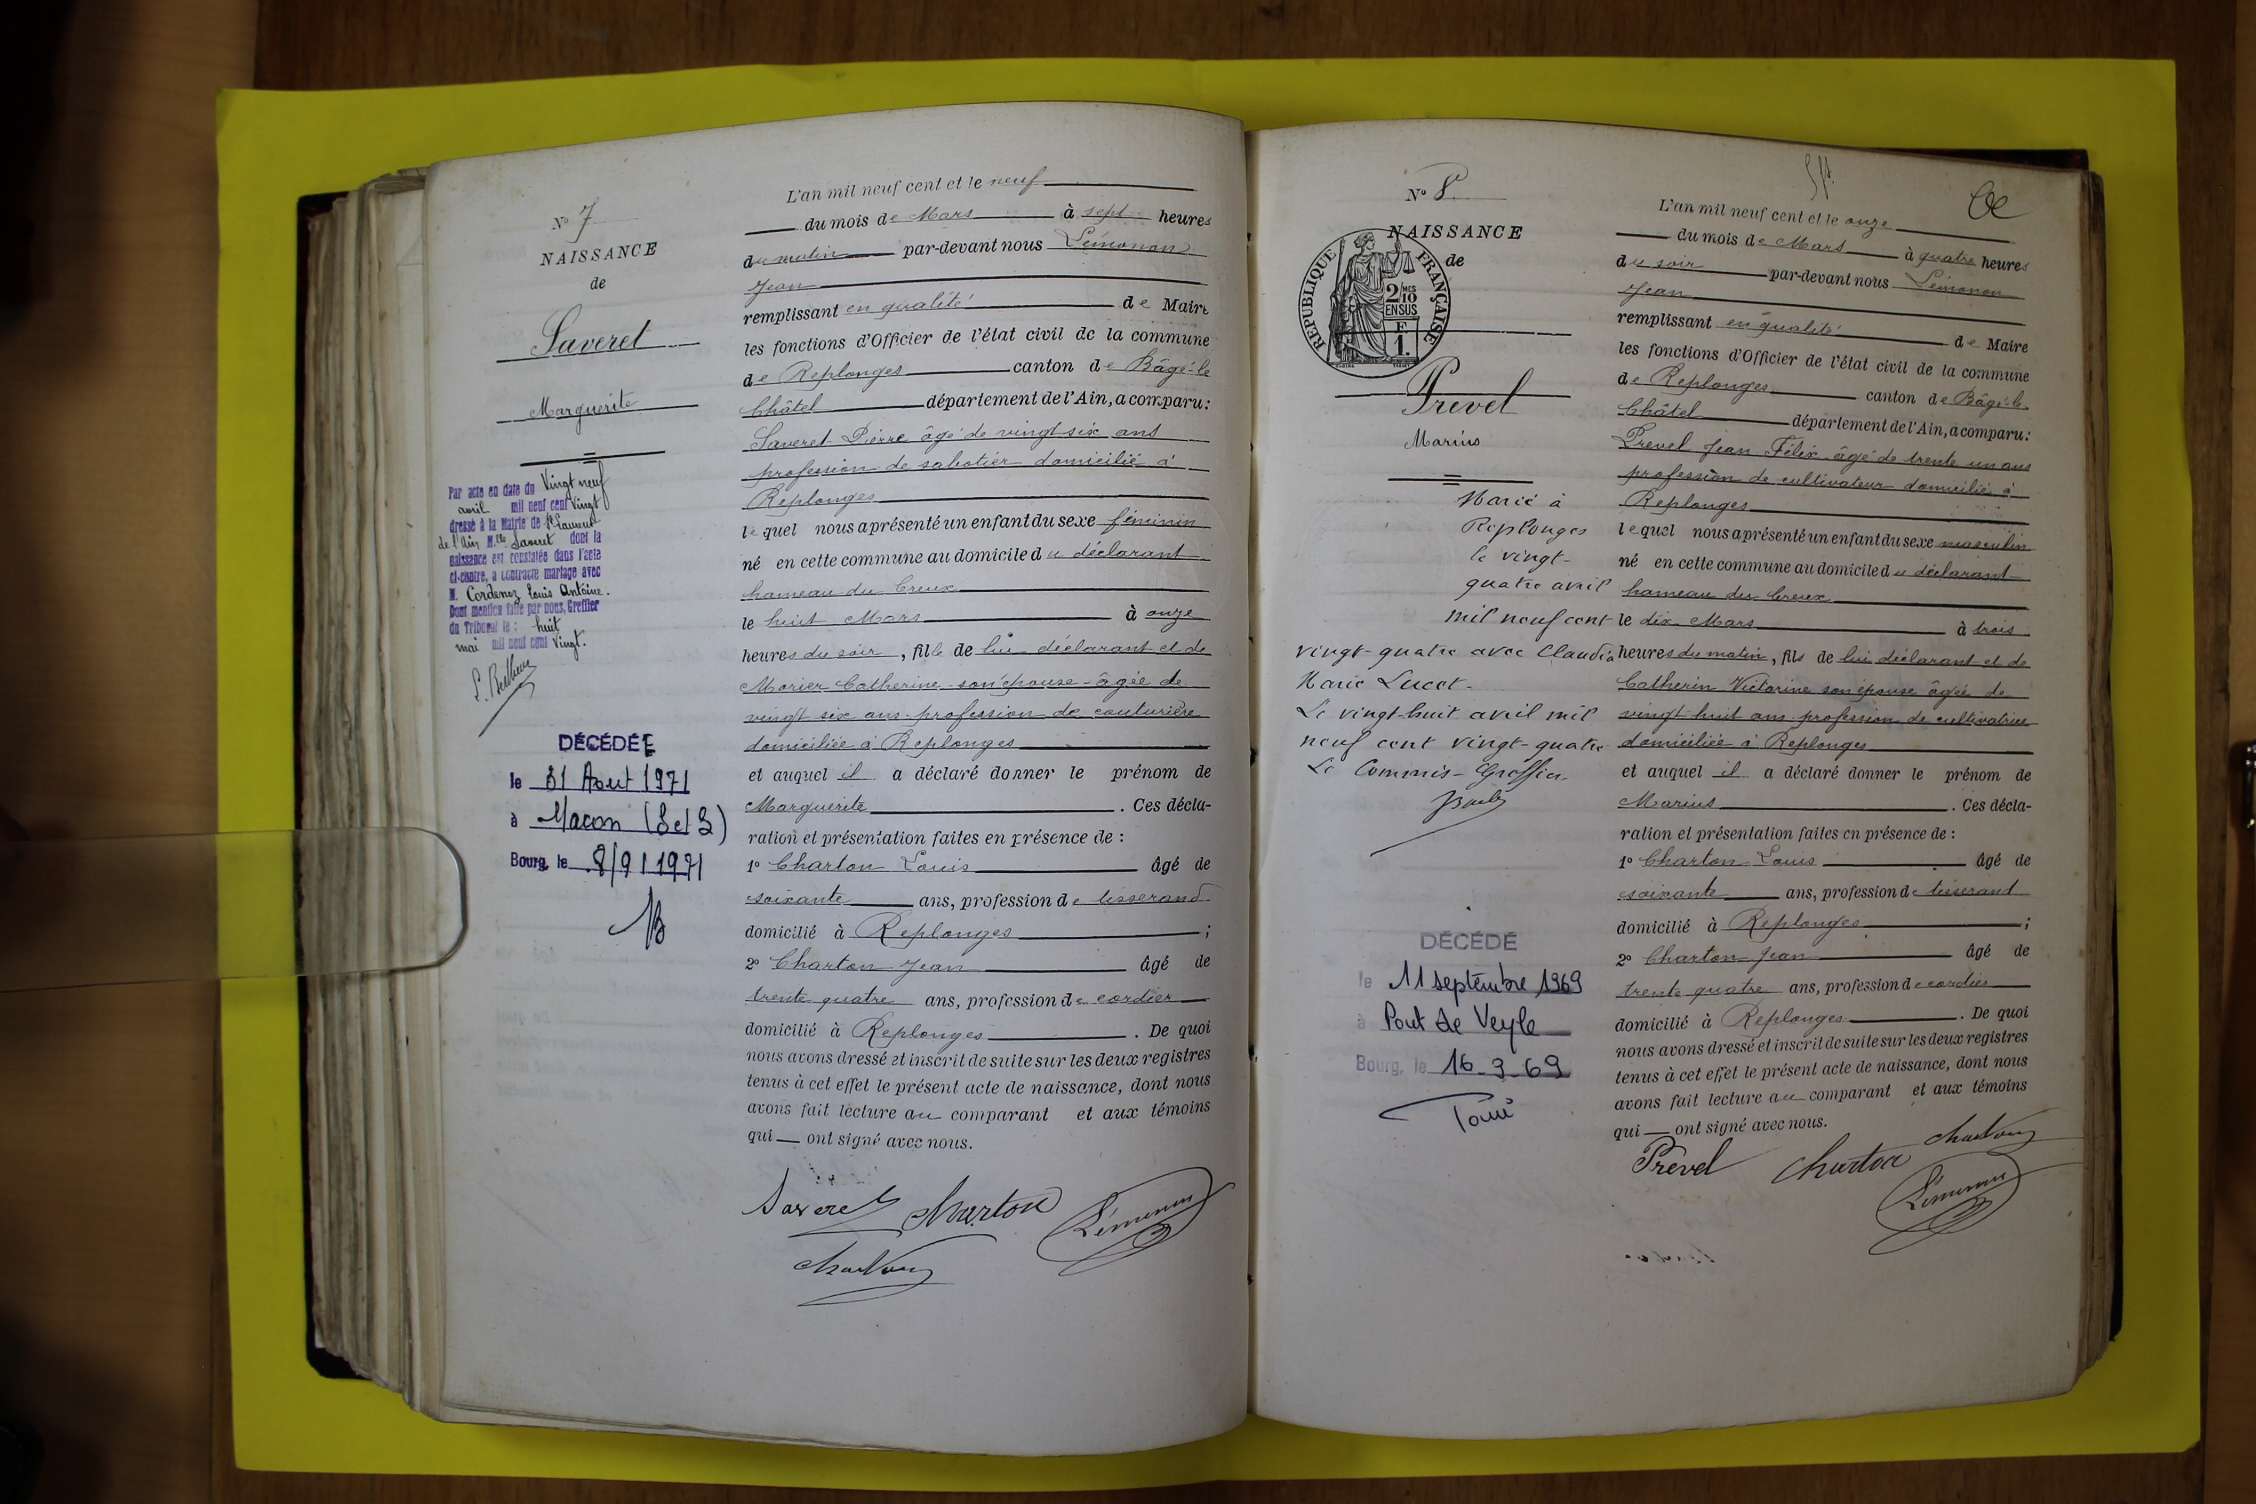 N° 7
NAISSANCE
de
Saveret
Marguerite
Par acte en date du Vingt neuf
avril mil neuf cent vingt
dressé à la Mairie de St Laurent
de l'Ain Mlle Saveret dont la
naissance est constatée dans l'acte
ci-contre, a contracté mariage avec
M. Cordenoz Louis Antoine.
Dont mention faite par nous, Greffier
du Tribunal le : huit
mai mil neuf cent Vingt.
DÉCÉDÉE
le 31 Aout 1971
à Macon (S et L)
Bourg, le 8/9/1971
L'an mil neuf cent et le neuf
du mois de Mars à sept heures
du matin par-devant nous Lémonon
Jean
remplissant en qualité de Maire
les fonctions d'Officier de l'état civil de la commune
de Replonges canton de Bâgé-le
Châtel département de l'Ain, a comparu :
Saveret Pierre âgé de vingt six ans
profession de sabotier domicilié à
Replonges
lequel nous a présenté un enfant du sexe féminin
né en cette commune au domicile du déclarant
hameau du Creux
le huit Mars à onze
heures du soir, fille de lui déclarant et de
Morier Catherine son épouse âgée de
vingt six ans profession de couturière
domiciliée à Replonges
et auquel il a déclaré donner le prénom de
Marguerite . Ces décla-
ration et présentation faites en présence de :
1° Charton Louis âgé de
soixante ans, profession de tisserand
domicilié à Replonges ;
2° Charton Jean âgé de
trente quatre ans, profession de cordier
domicilié à Replonges . De quoi
nous avons dressé et inscrit de suite sur les deux registres
tenus à cet effet le présent acte de naissance, dont nous
avons fait lecture au comparant et aux témoins
qui ont signé avec nous.
Saveret Charton Lémonon
Charton
N° 8
NAISSANCE
de
REPUBLIQUE FRANÇAISE
2 MES
10
EN SUS
F
1.
Prevel
Marius
Marié à
Replonges
le vingt-
quatre avril
mil neuf cent
vingt-quatre avec Claudia
Marie Lucet.
Le vingt-huit avril mil
neuf cent vingt-quatre
Le Commis-Greffier
DÉCÉDÉ
le 11 septembre 1969
à Pont de Veyle
Bourg, le 16_9_69
L'an mil neuf cent et le onze
du mois de Mars à quatre heures
du soir par-devant nous Lémonon
Jean
remplissant en qualité de Maire
les fonctions d'Officier de l'état civil de la commune
de Replonges canton de Bâgé-le
Châtel département de l'Ain, a comparu :
Prevel Jean Félix âgé de trente un ans
profession de cultivateur domicilié à
Replonges
lequel nous a présenté un enfant du sexe masculin
né en cette commune au domicile du déclarant
hameau du Creux
le dix Mars à trois
heures du matin, fils de lui déclarant et de
Catherin Victorine son épouse âgée de
vingt huit ans profession de cultivatrice
domiciliée à Replonges
et auquel il a déclaré donner le prénom de
Marius . Ces décla-
ration et présentation faites en présence de :
1° Charton Louis âgé de
soixante ans, profession de tisserand
domicilié à Replonges ;
2° Charton Jean âgé de
trente quatre ans, profession de cordier
domicilié à Replonges . De quoi
nous avons dressé et inscrit de suite sur les deux registres
tenus à cet effet le présent acte de naissance, dont nous
avons fait lecture au comparant et aux témoins
qui ont signé avec nous.
Prevel Charton Charton
Lémonon